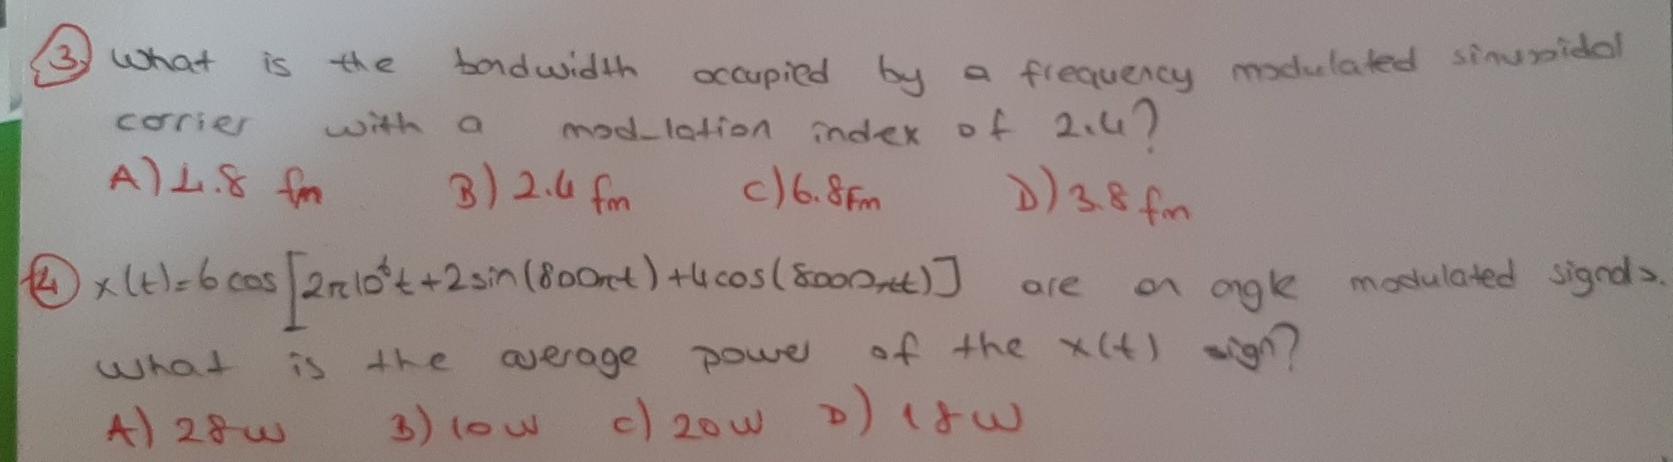 3) What is the bandwidth occupied by a frequency modulated sinusoidal
carrier with a mod_lation index of 2.4?
A) 4.8 fm B) 2.4 fm C) 6.8 fm D) 3.8 fm
4) x(t)=6cos[2π10⁶t+2sin(800πt)+4cos(8000πt)] are an angle modulated signals.
what is the average power of the x(t) sign?
A) 28w B) 10w C) 20w D) 18w